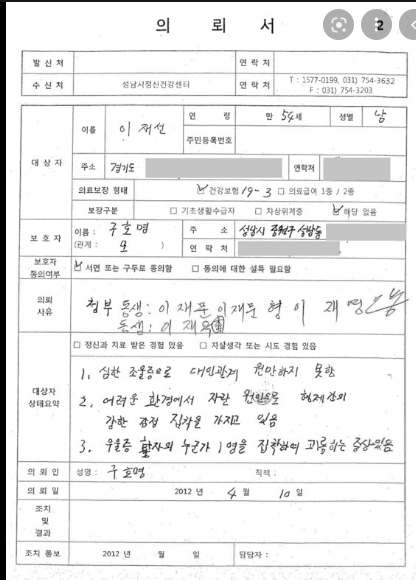 2
의 뢰 서
발 신 처 연 락 처
수 신 처 성남시정신건강센터 연 락 처 T : 1577-0199, 031) 754-3632
F : 031) 754-3203
대 상 자
이름 이 재선 연 령 만 54세 성별 남
주민등록번호
주소 경기도 연락처
의료보장 형태 ☑ 건강보험 19-3 □ 의료급여 1종 / 2종
보장구분 □ 기초생활수급자 □ 차상위계층 ☑ 해당 없음
보 호 자
이름 : 구호명 주 소 성남시 중원구
(관계 : 모 ) 연 락 처
보호자
동의여부
☑ 서면 또는 구두로 동의함 □ 동의에 대한 설득 필요함
의뢰
사유
첨부 동생: 이 재문 이재문 형 이 재 영
동생: 이 재옥
대상자
상태요약
□ 정신과 치료 받은 경험 있음 □ 자살생각 또는 시도 경험 있음
1. 심한 조울증으로 대인관계 원만하지 못함
2. 어려운 환경에서 자란 원인으로 형제간의
강한 감정 집착을 가지고 있음
3. 우울증 환자의 누군가 1명을 집착하여 괴롭히는 증상있음
의 뢰 인 성명 : 구호명 직책 :
의 뢰 일 2012 년 4 월 10 일
조치
및
결과
조치 통보 2012 년 월 일 담당자 :